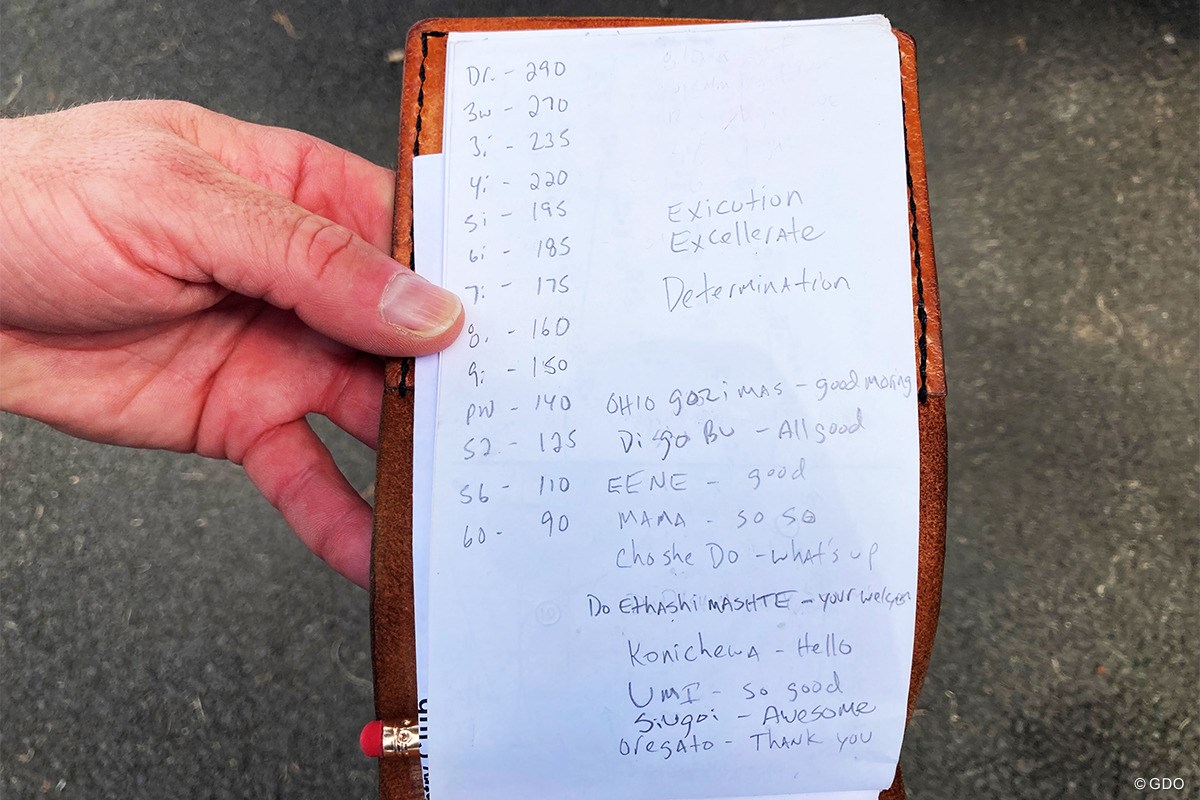 Dr. - 290
3w - 270
3i - 235
4i - 220
5i - 195
6i - 185
7i - 175
8i - 160
9i - 150
PW - 140
52 - 125
56 - 110
60 - 90
Exicution
Excellerate
Determination
OHIO gozi mas - good morning
Di Bu - All good
EENE - good
MAMA - so so
Cho she Do - what's up
Do EthAshi MASHTE - your
Konichewa - Hello
UMI - so good
Siugoi - Awesome
Oregato - Thank you
© GDO